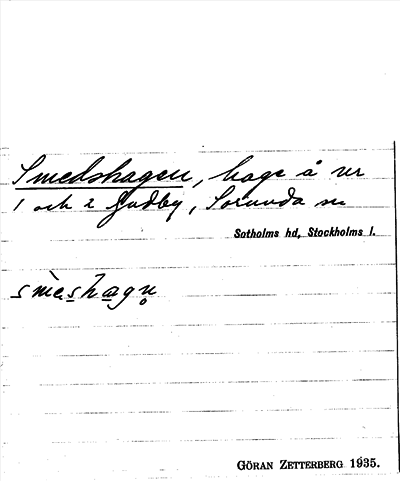 Smedshagen, hage å nr
1 och 2 Gudby, Sorunda sn
Sotholms hd, Stockholms l.
smèshagn̥
GÖRAN ZETTERBERG 1935.